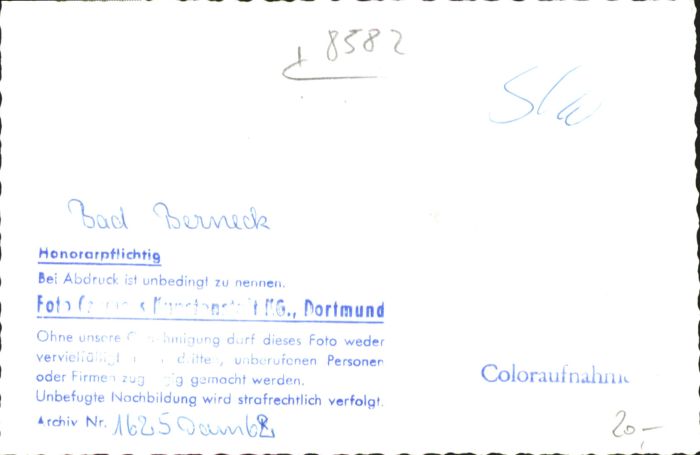 8582
S/W
Bad Berneck
Honorarpflichtig
Bei Abdruck ist unbedingt zu nennen.
Foto KG., Dortmund
Ohne unsere Genehmigung darf dieses Foto weder
dritten, unberufenen Personen
oder Firmen gemacht werden.
Unbefugte Nachbildung wird strafrechtlich verfolgt.
Archiv Nr. 1625
Coloraufnahme
20,-